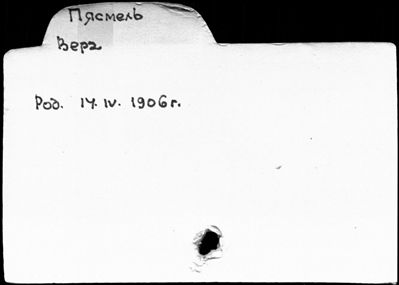 Пясмель
Вера
Род. 14.IV. 1906г.